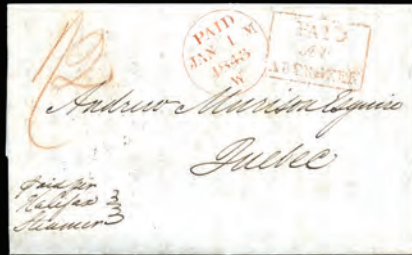 PAID
JAN 1 M
1845
W
PAID
AT
ABERDEEN
1/2
Andrew Murison Esquire
Quebec
Paid per
Halifax
Steamer